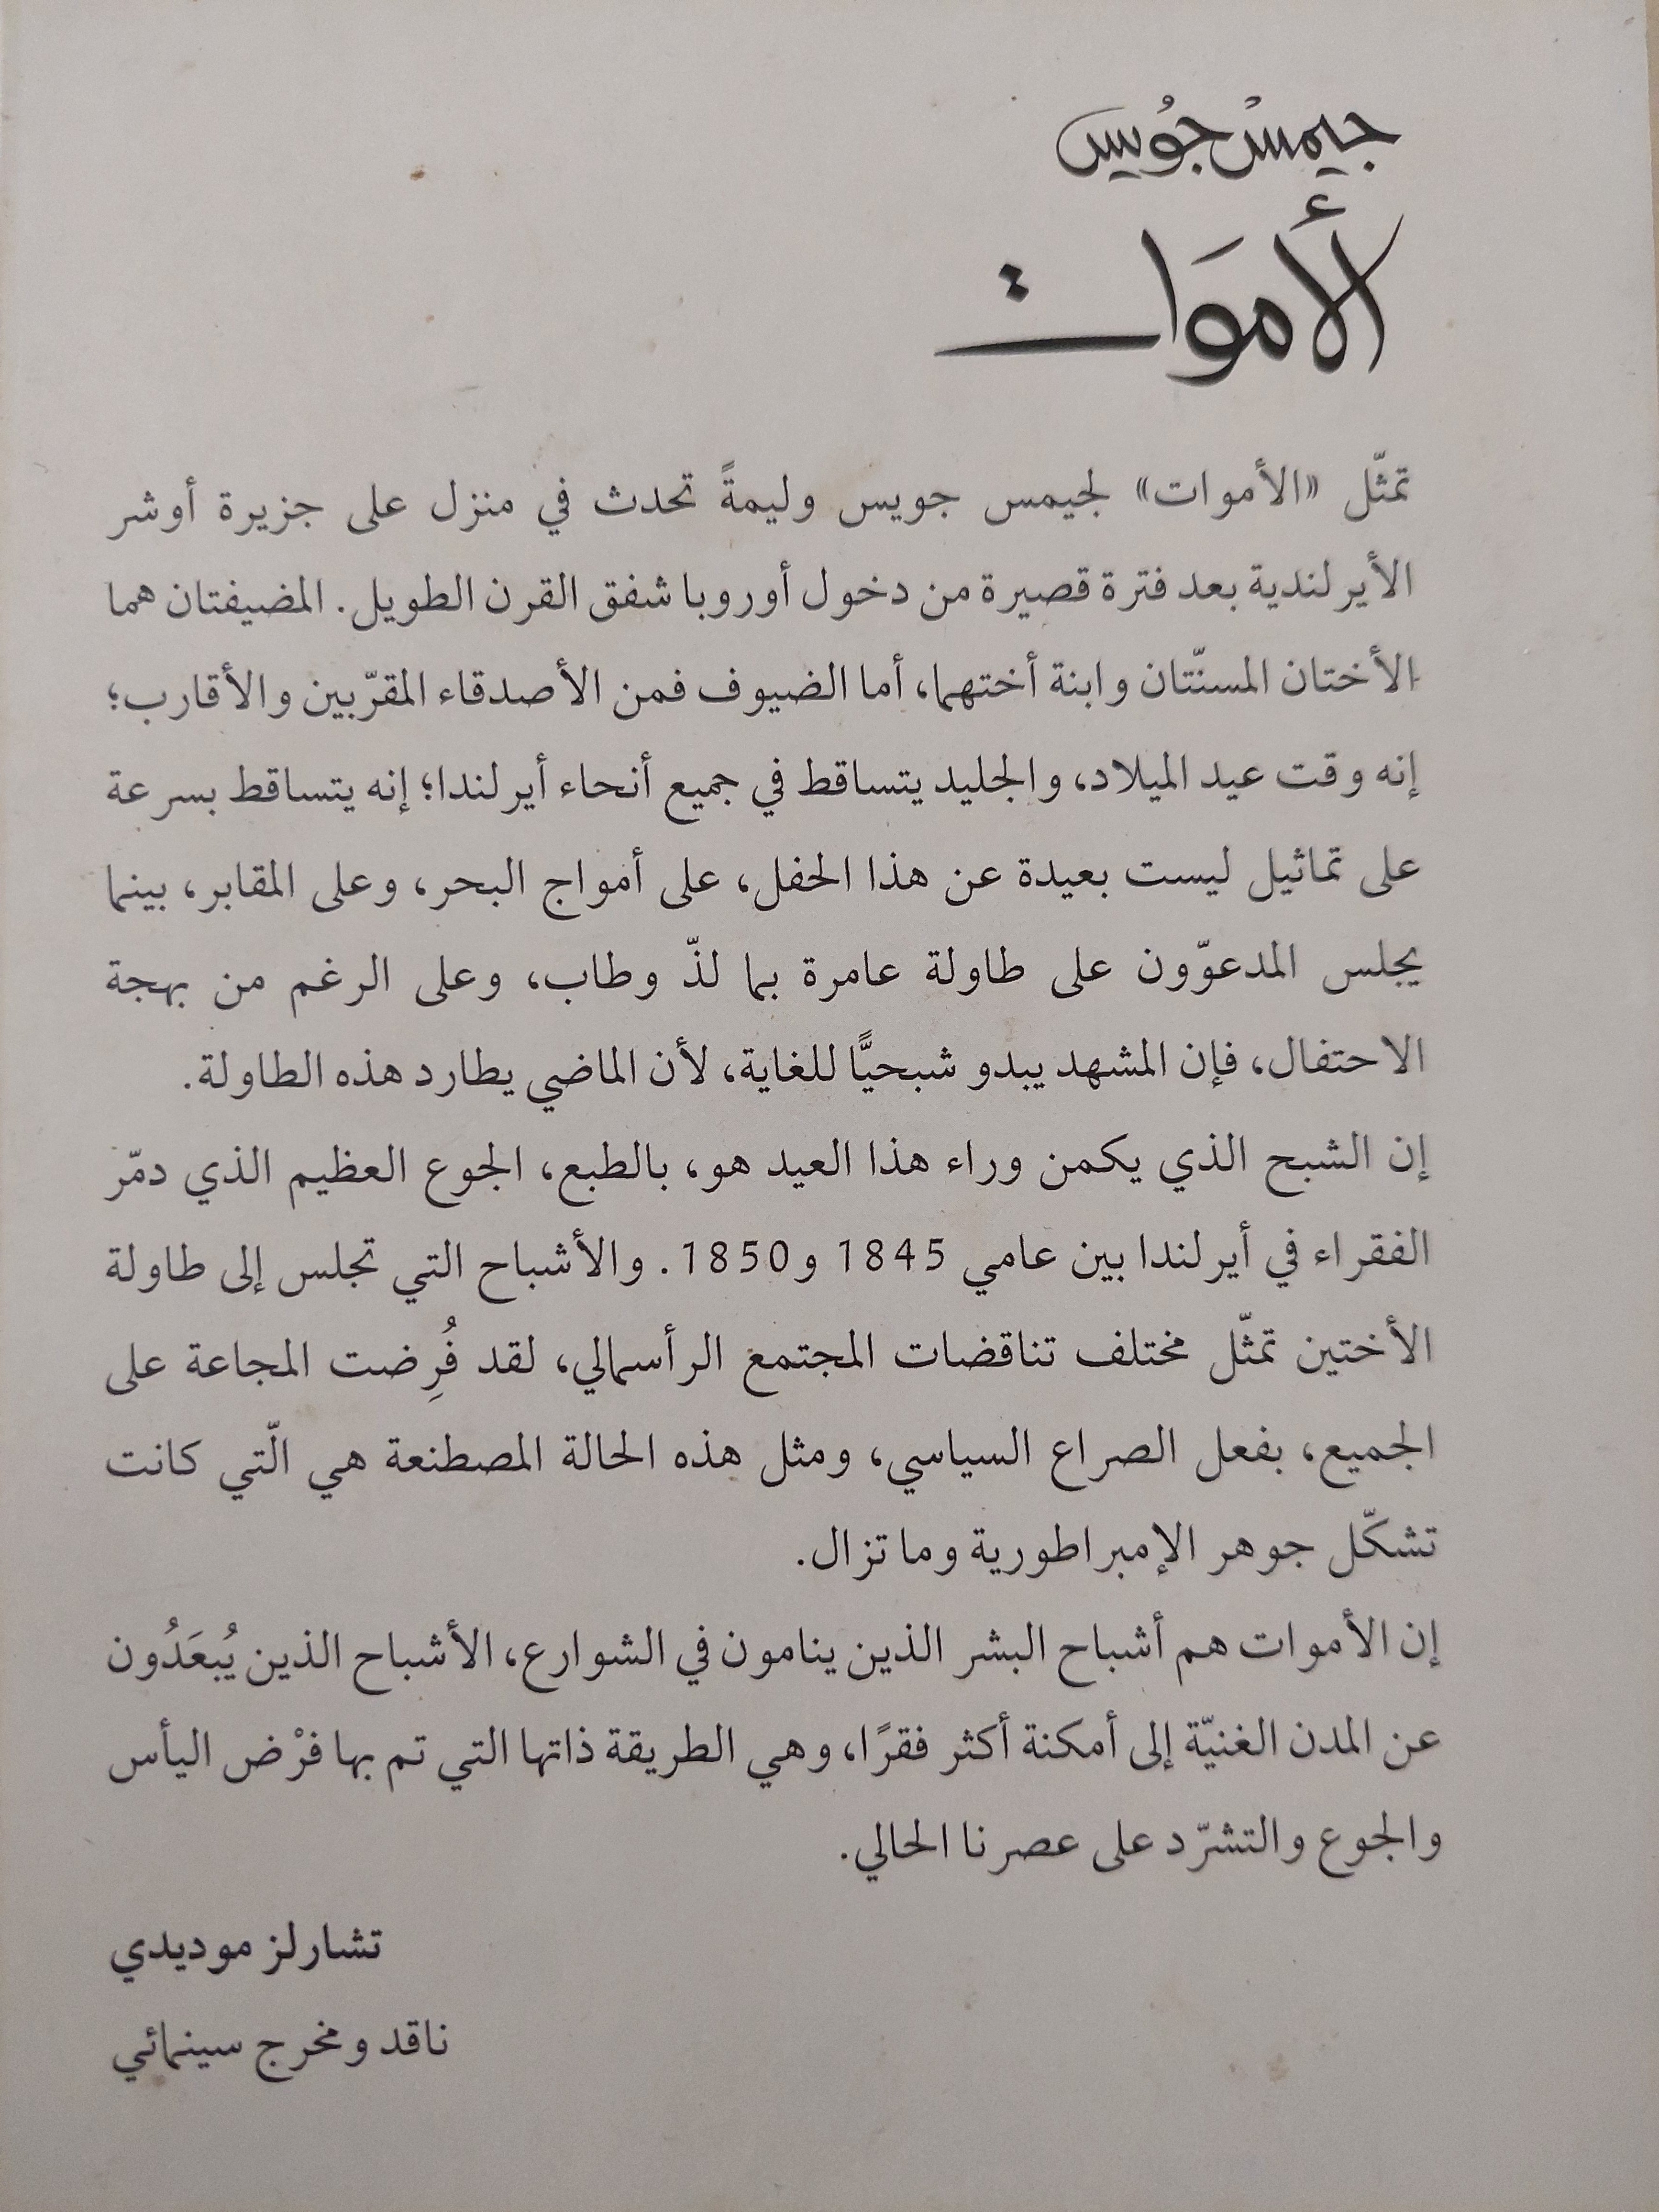 جيمسْ جوُيس
الأموَات
تمثّل «الأموات» لجيمس جويس وليمةً تحدث في منزل على جزيرة أوشر
الأيرلندية بعد فترة قصيرة من دخول أوروبا شفق القرن الطويل. المضيفتان هما
الأختان المسنّتان وابنة أختهما، أما الضيوف فمن الأصدقاء المقرّبين والأقارب؛
إنه وقت عيد الميلاد، والجليد يتساقط في جميع أنحاء أيرلندا؛ إنه يتساقط بسرعة
على تماثيل ليست بعيدة عن هذا الحفل، على أمواج البحر، وعلى المقابر، بينما
يجلس المدعوّون على طاولة عامرة بما لذّ وطاب، وعلى الرغم من بهجة
الاحتفال، فإن المشهد يبدو شبحيًّا للغاية، لأن الماضي يطارد هذه الطاولة.
إن الشبح الذي يكمن وراء هذا العيد هو، بالطبع، الجوع العظيم الذي دمّر
الفقراء في أيرلندا بين عامي 1845 و1850. والأشباح التي تجلس إلى طاولة
الأختين تمثّل مختلف تناقضات المجتمع الرأسمالي، لقد فُرِضت المجاعة على
الجميع، بفعل الصراع السياسي، ومثل هذه الحالة المصطنعة هي الّتي كانت
تشكّل جوهر الإمبراطورية وما تزال.
إن الأموات هم أشباح البشر الذين ينامون في الشوارع، الأشباح الذين يُبعَدُون
عن المدن الغنيّة إلى أمكنة أكثر فقرًا، وهي الطريقة ذاتها التي تم بها فرْض اليأس
والجوع والتشرّد على عصرنا الحالي.
تشارلز موديدي
ناقد ومخرج سينمائي